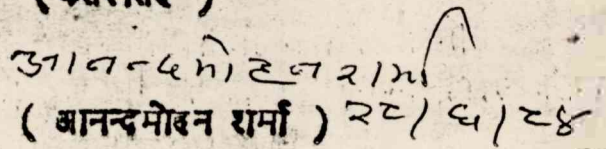 आनन्दमोहन शर्मा
( आनन्दमोहन शर्मा ) २८/६/८४